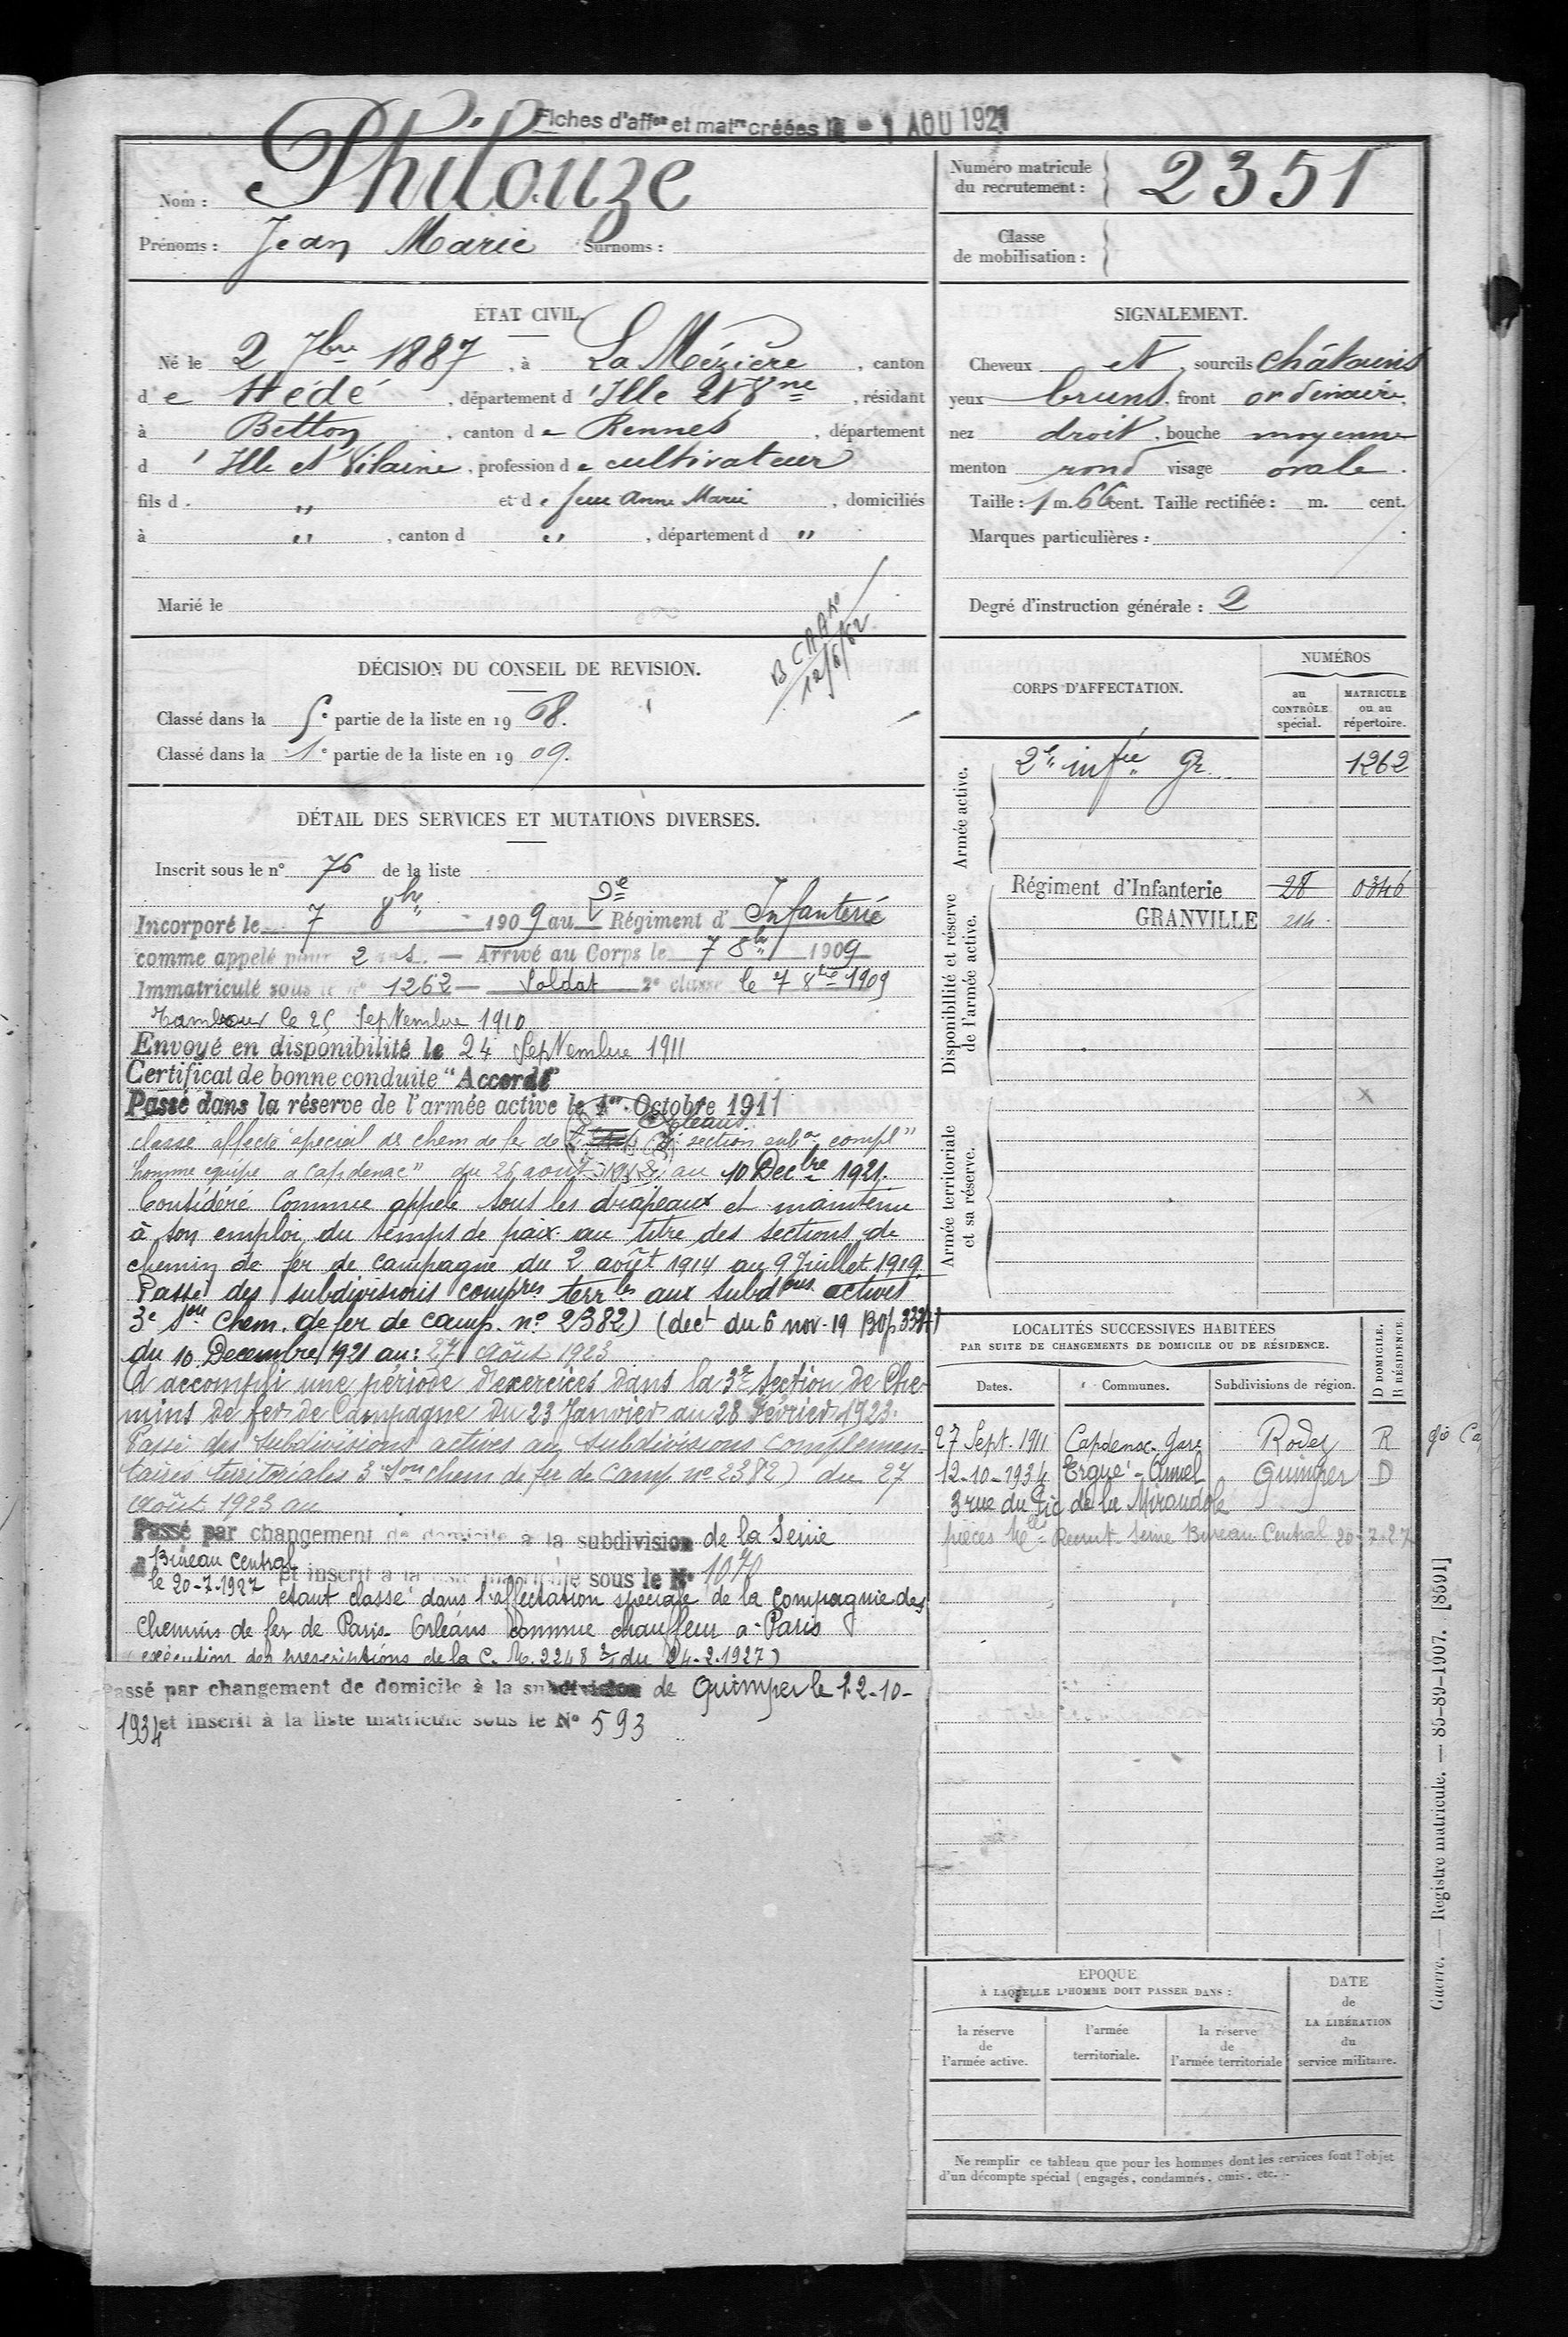 Fiches d'aff^on et mat^re créées le - 1 AOU 1921
Nom : Philouze
Prénoms : Jean Marie Surnoms :
Numéro matricule
du recrutement : 2351
Classe
de mobilisation :
ÉTAT CIVIL.
Né le 2 7bre 1887, à La Mézière, canton
de Hédé, département d'Ille et Vne, résidant
à Betton, canton de Rennes, département
d'Ille et Vilaine, profession de cultivateur
fils d. " et de feue Anne Marie, domiciliés
à ", canton d ", département d "
Marié le
SIGNALEMENT.
Cheveux et sourcils châtains
yeux bruns, front ordinaire,
nez droit, bouche moyenne
menton rond visage ovale.
Taille : 1 m. 66 cent. Taille rectifiée : m. cent.
Marques particulières :
Degré d'instruction générale : 2
12/6/62
DÉCISION DU CONSEIL DE REVISION.
Classé dans la 5e partie de la liste en 1908.
Classé dans la 1e partie de la liste en 1909.
DÉTAIL DES SERVICES ET MUTATIONS DIVERSES.
Inscrit sous le n° 76 de la liste
Incorporé le 7 8bre 1909 au 2e Régiment d'Infanterie
comme appelé pour 2 ans. — Arrivé au Corps le 7 8bre 1909
Immatriculé sous le n° 1262 — Soldat 2e classe le 7 8bre 1909
Tambour le 25 Septembre 1910
Envoyé en disponibilité le 24 Septembre 1911
Certificat de bonne conduite "Accordé"
Passé dans la réserve de l'armée active le 1er Octobre 1911
classé affecté spécial des chem de fer de Orléans section compl"
"homme équipe a Capdenac" du 26 août au 10 Decbre 1921.
Considéré comme appelé sous les drapeaux et maintenu
à son emploi du temps de paix au titre des sections de
chemin de fer de campagne du 2 août 1914 au 9 Juillet 1919.
Passé des subdivisions compres terrles aux subdons actives
3e Son Chem. de fer de camp. n° 2382) (dect du 6 nov. 19
du 10 Decembre 1921 au : 27 Août 1923
A accompli une période d'exercices dans la 3e Section de Che-
mins de fer de Campagne du 23 Janvier au 28 Février 1923.
Passé des subdivisions actives au subdivisions complémen-
taires territoriales 3e Son chem de fer de Camp. n° 2382) du 27
Août 1923 au
Passé par changement de domicile a la subdivision de la Seine
Bureau Central
et inscrit a la liste matricule sous le N° 1070
le 20-7-1927 étant classé dans l'affectation spéciale de la Compagnie des
Chemins de fer de Paris-Orléans comme chauffeur à Paris
(exécution des prescriptions de la C. M. 2248 du 24-2-1927)
Passé par changement de domicile à la subdivision de Quimper le 12-10-
1934 et inscrit à la liste matricule sous le N° 593
CORPS D'AFFECTATION.
NUMÉROS
au
CONTRÔLE
spécial.
MATRICULE
ou au
répertoire.
Armée active.
2e infie Gr. 1262
Disponibilité et réserve
de l'armée active.
Régiment d'Infanterie 28 0346
GRANVILLE 214
Armée territoriale
et sa réserve.
LOCALITÉS SUCCESSIVES HABITÉES
PAR SUITE DE CHANGEMENTS DE DOMICILE OU DE RÉSIDENCE.
Dates. Communes. Subdivisions de région. D DOMICILE. R RÉSIDENCE.
27 Sept. 1911 Capdenac-Gare Rodez R
12-10-1934 Ergué-Armel Quimper D
3 rue du Pic de la Mirandole
pièces Mles Recrut Seine Bureau Central 20-7-27
ÉPOQUE
À LAQUELLE L'HOMME DOIT PASSER DANS :
la réserve
de
l'armée active.
l'armée
territoriale.
la réserve
de
l'armée territoriale
DATE
de
LA LIBÉRATION
du
service militaire.
Ne remplir ce tableau que pour les hommes dont les services font l'objet
d'un décompte spécial (engagés, condamnés, omis, etc.).
Guerre. — Registre matricule. — 85-89-1907. [8691]